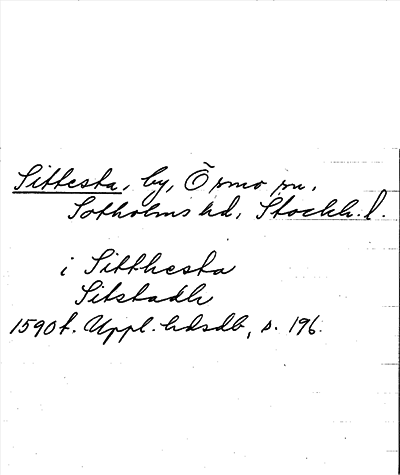 Sittesta, by, Ösmo sn,
Sotholms hd, Stockh. l.
i Sitthesta
Sitstadh
1590 f. Uppl. hdsdb, s. 196.